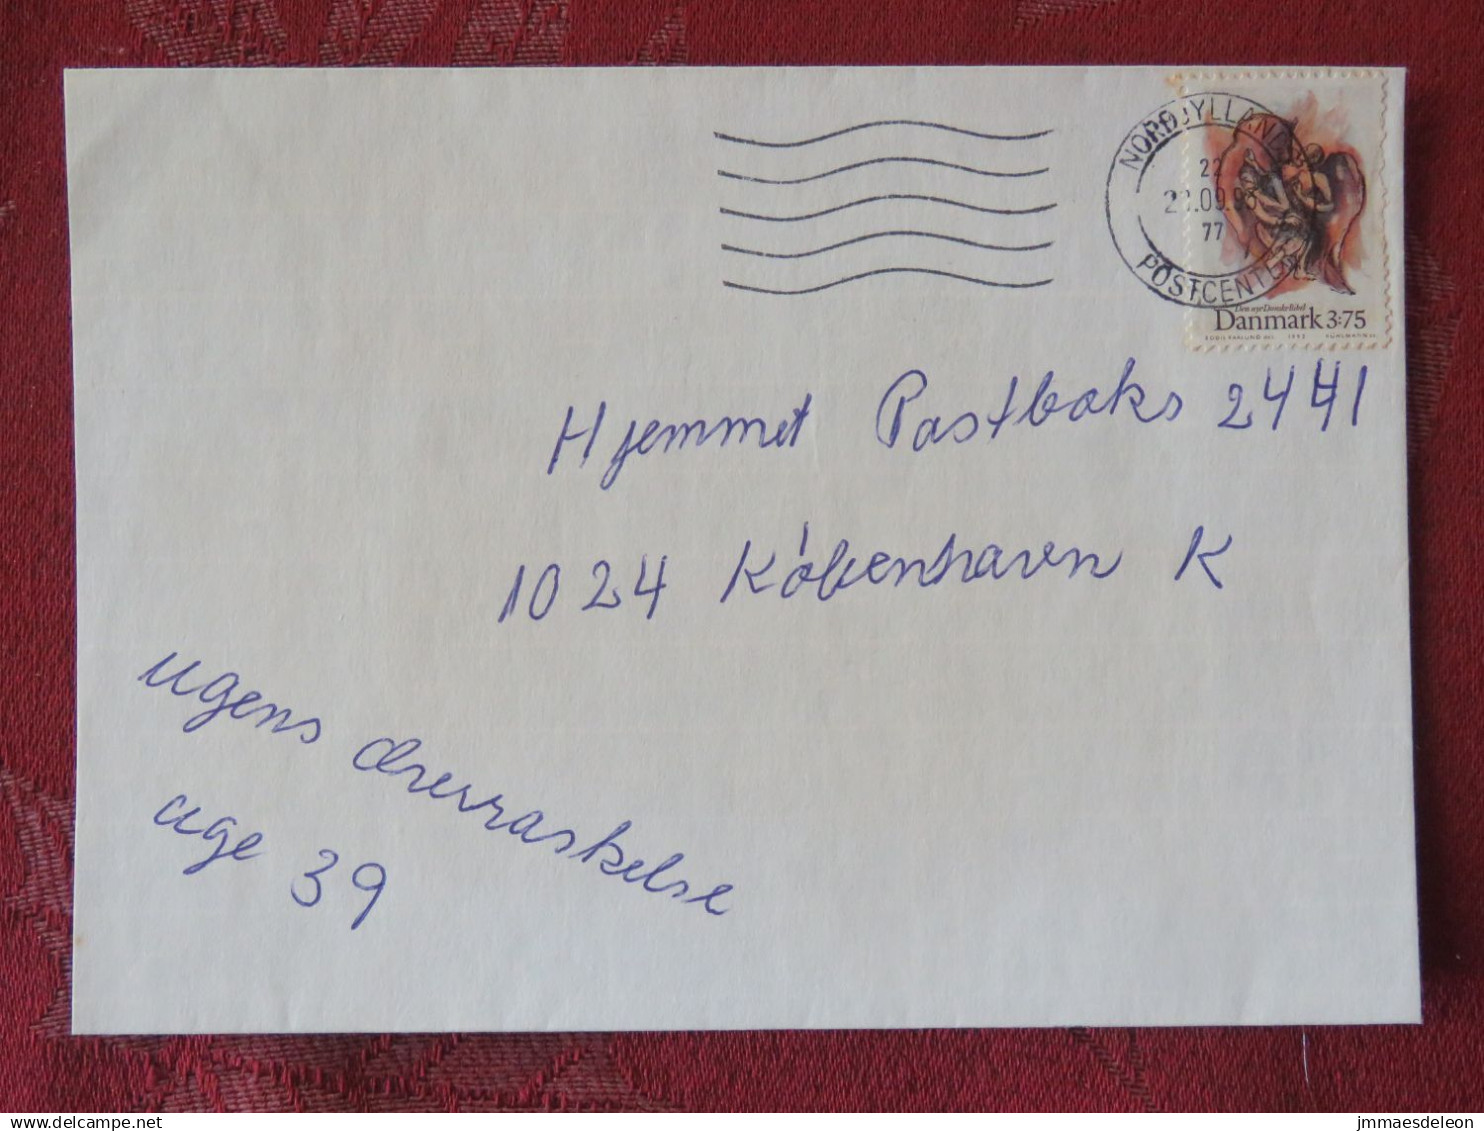 NORDJYLLAND
22
77
POSTCENTER
Den nye Danske Bibel
Danmark 3:75
Hjemmet Postboks 2441
1024 København K
ugens overraskelse
uge 39
delcampe.net
jmmaesdeleon